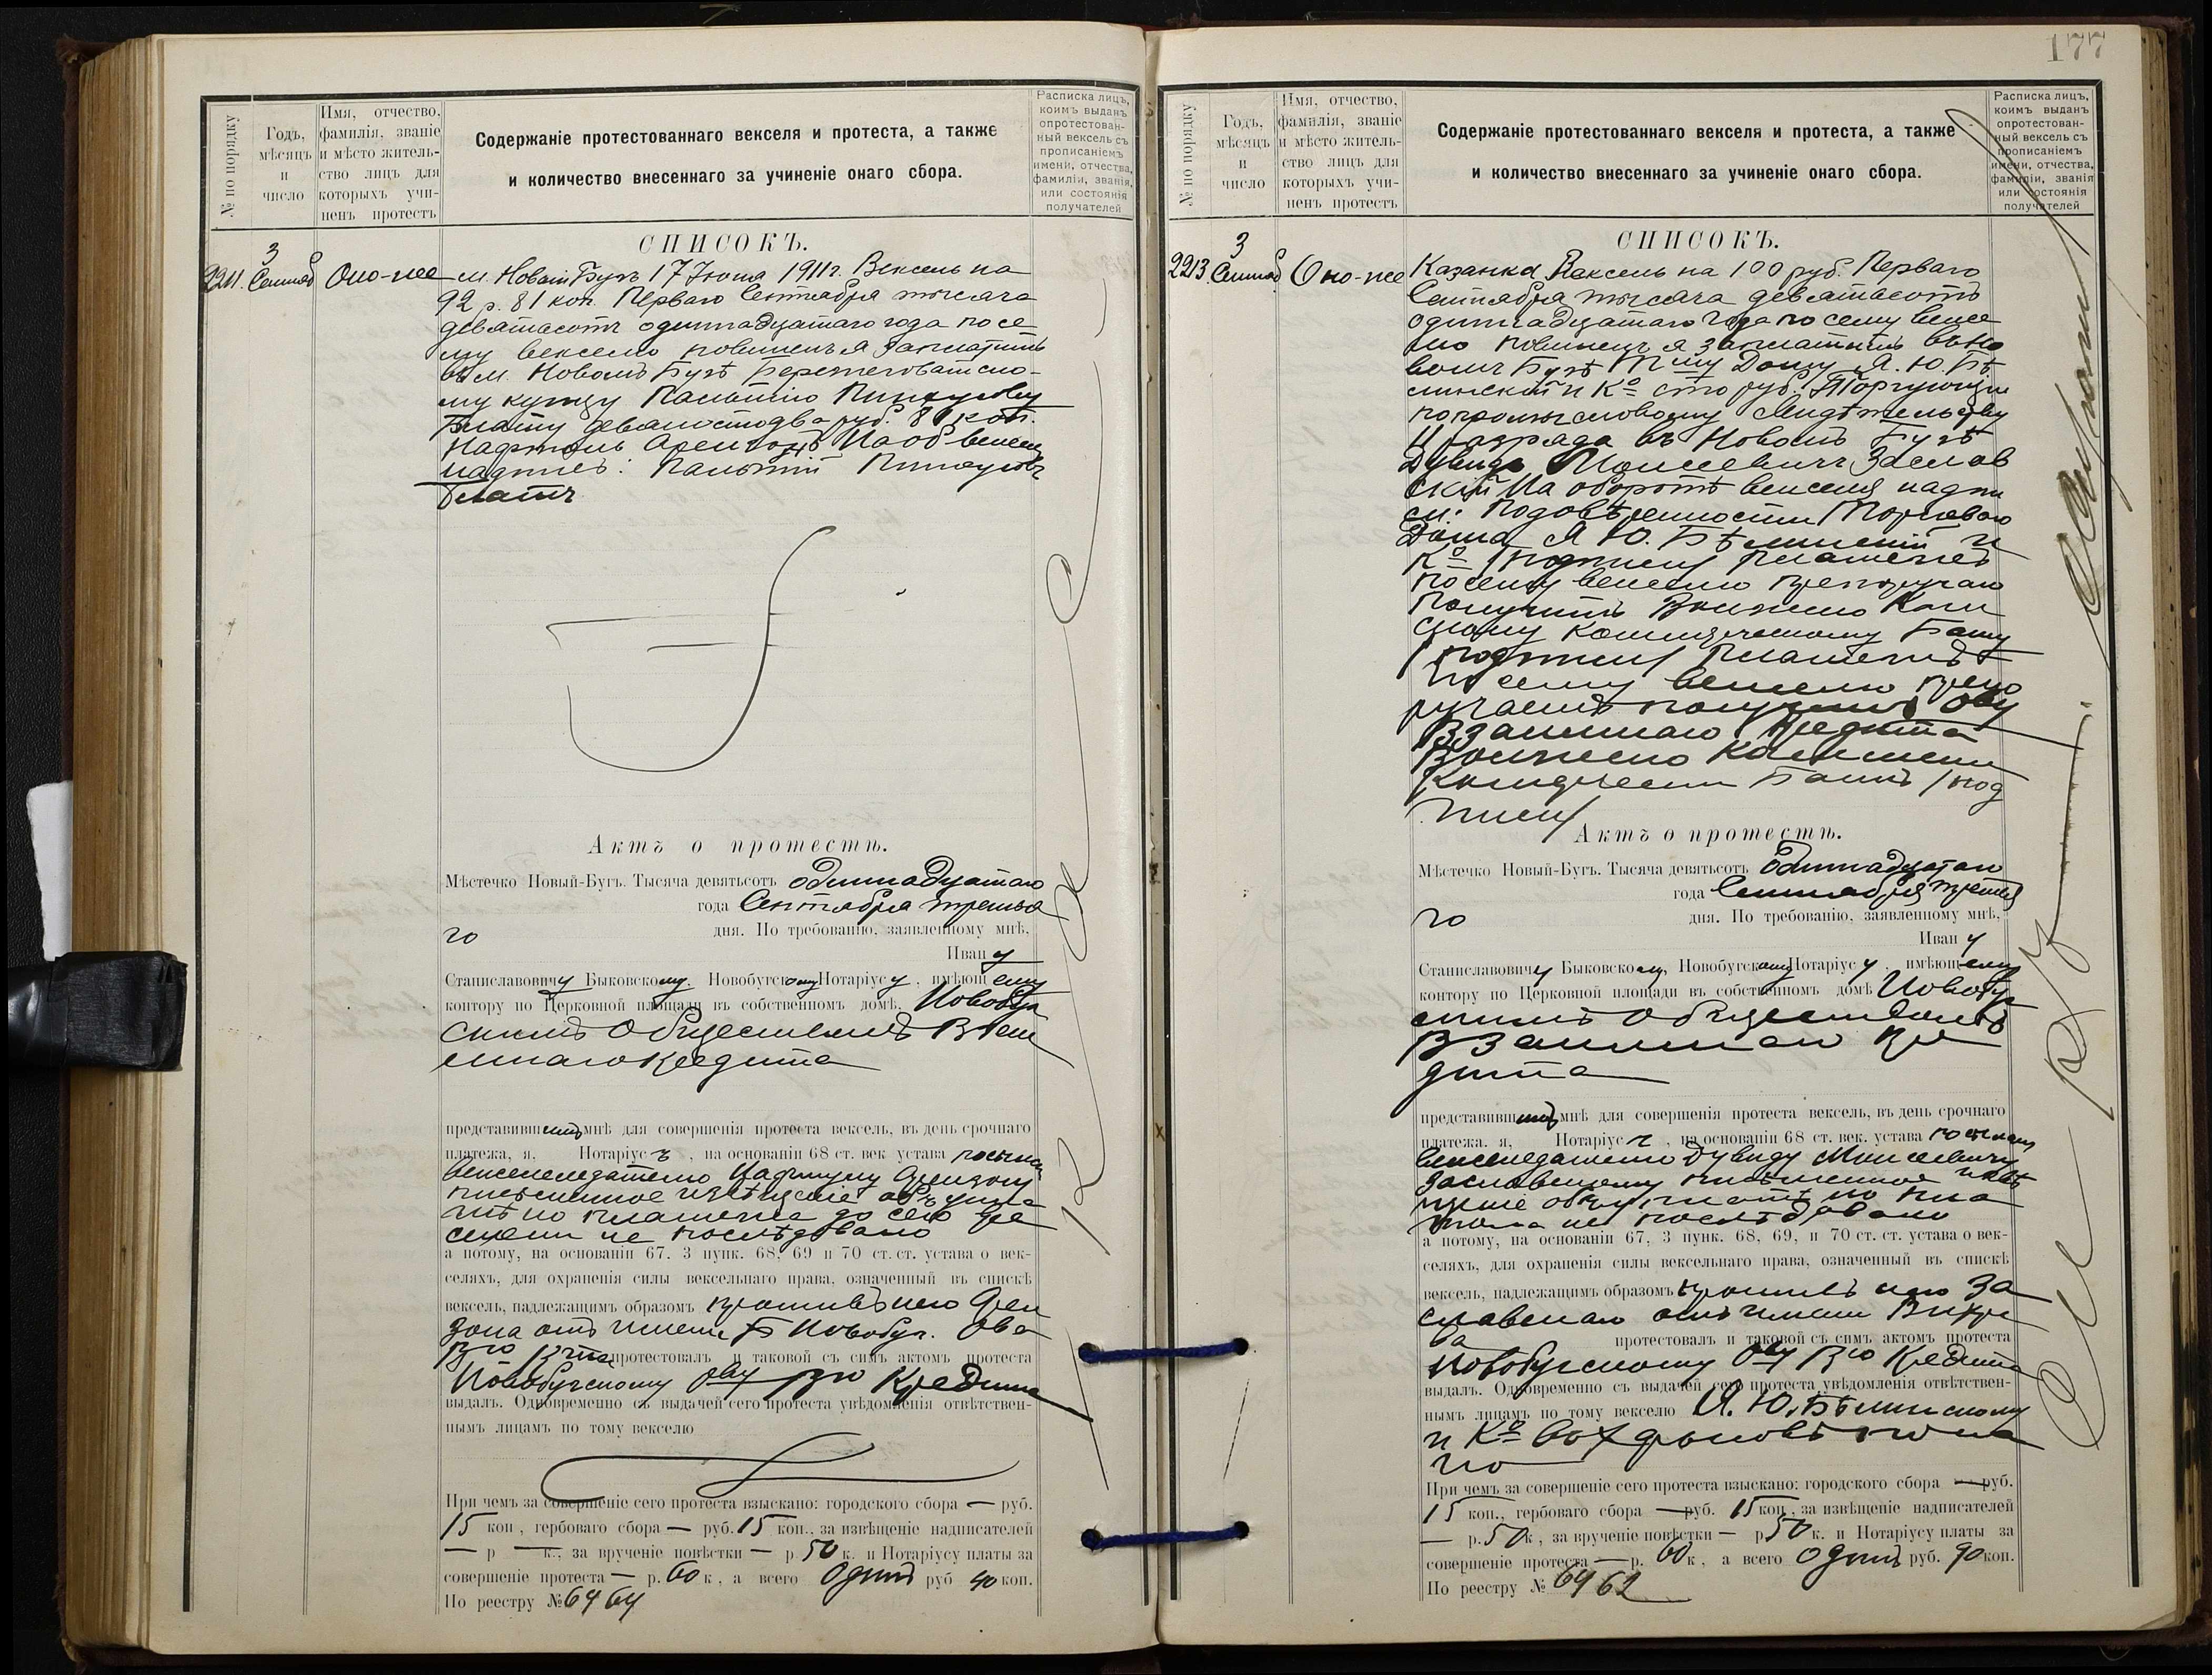 № по порядку
Годъ, мѣсяцъ и число
Имя, отчество, фамилія, званіе и мѣсто жительство лицъ для которыхъ учиненъ протестъ
Содержаніе протестованнаго векселя и протеста, а также
и количество внесеннаго за учиненіе онаго сбора.
Расписка лицъ, коимъ выданъ опротестованный вексель съ прописаніемъ имени, отчества, фамиліи, званія, или состоянія получателей
СПИСОКЪ.
2211.
3 Сентяб
Оно-же
м. Новый Бугъ 17 Іюня 1911 г. Вексель на
92 р. 81 коп. Перваго Сентября тысяча
девятьсотъ одиннадцатаго года по се
му векселю повиненъ я заплатить
въ м. Новомъ Бугѣ Березнеговатско-
му купцу Пальтію Пинхусову
Блату девяносто два руб. 81 коп.
На об векселя
надпись: Пальтій Пинхусовъ
Блатъ
Актъ о протестѣ.
Мѣстечко Новый-Бугъ. Тысяча девятьсотъ одиннадцатаго
года Сентября третья
го дня. По требованію, заявленному мнѣ,
Ивану
Станиславовичу Быковскому, Новобугскому Нотаріусу, имѣющему
контору по Церковной площади въ собственномъ домѣ, Новобуг
скимъ Обществомъ Взаи
мнаго Кредита
представившимъ мнѣ для совершенія протеста вексель, въ день срочнаго
платежа, я, Нотаріусъ, на основаніи 68 ст. век устава послалъ
векселедателю Арензону
письменное извѣщеніе объ упла
тѣ но платежа до сего вре
мени не послѣдовало
а потому, на основаніи 67, 3 пунк. 68, 69 и 70 ст. ст. устава о век-
селяхъ, для охраненія силы вексельнаго права, означенный въ спискѣ
вексель, надлежащимъ образомъ противъ него Арен
зона отъ имени Новобуг. Ова
Вго Кта протестовалъ и таковой съ симъ актомъ протеста
Новобугскому Ову Вго Кредита
выдалъ. Одновременно съ выдачей сего протеста увѣдомленія отвѣтствен-
нымъ лицамъ по тому векселю
При чемъ за совершеніе сего протеста взыскано: городского сбора — руб.
15 коп, гербоваго сбора — руб. 15 коп., за извѣщеніе надписателей
— р — к., за врученіе повѣстки — р 50 к. и Нотаріусу платы за
совершеніе протеста — р. 60 к, а всего Одинъ руб 40 коп.
По реестру № 6464
177
№ по порядку
Годъ, мѣсяцъ и число
Имя, отчество, фамилія, званіе и мѣсто жительство лицъ для которыхъ учиненъ протестъ
Содержаніе протестованнаго векселя и протеста, а также
и количество внесеннаго за учиненіе онаго сбора.
Расписка лицъ, коимъ выданъ опротестованный вексель съ прописаніемъ имени, отчества, фамиліи, званія или состоянія получателей
СПИСОКЪ.
2213.
3 Сентяб
Оно-же
Казанка Вексель на 100 руб. Перваго
Сентября тысяча девятьсотъ
одиннадцатаго года по сему вексе
лю повиненъ я заплатить въ Но
вомъ Бугѣ Т му Дому Я. Ю. Бѣ
линскій и Кº сто руб. Торгующій
по промысловому свидѣтельству
II разряда въ Новомъ Бугѣ
Дувидъ Моисеевичъ Заслав
скій На оборотѣ векселя надпи
си: По довѣренности Торговаго
Дома Я Ю. Бѣлинскій и
Кº /подпись/ Платежъ
по сему векселю препоручаю
получить
Коммерческому Банку
/подписи/ Платежъ
по сему векселю препо
ручаемъ получить Ову
Взаимнаго Кредита
Коммерческ Банкъ /под
писи/
Актъ о протестѣ.
Мѣстечко Новый-Бугъ. Тысяча девятьсотъ Одиннадцатаго
года Сентября третья
го дня. По требованію, заявленному мнѣ,
Ивану
Станиславовичу Быковскому, Новобугскому Нотаріусу, имѣющему
контору по Церковной площади въ собственномъ домѣ Новобуг
скимъ Обществомъ
Взаимнаго Кре
дита
представившимъ мнѣ для совершенія протеста вексель, въ день срочнаго
платежа, я, Нотаріусъ, на основаніи 68 ст. век. устава послалъ
векселедателю Дувиду Моисеевичу
Заславскому письменное извѣ
щеніе объ уплатѣ но пла
тежа не послѣдовало
а потому, на основаніи 67, 3 пунк. 68, 69, и 70 ст. ст. устава о век-
селяхъ, для охраненія силы вексельнаго права, означенный въ спискѣ
вексель, надлежащимъ образомъ противъ него За
славскаго отъ имени
протестовалъ и таковой съ симъ актомъ протеста
Новобугскому Ову Вго Кредита
выдалъ. Одновременно съ выдачей сего протеста увѣдомленія отвѣтствен-
нымъ лицамъ по тому векселю Я. Ю. Бѣлинскому
и Кº
При чемъ за совершеніе сего протеста взыскано: городского сбора — руб.
15 коп., гербоваго сбора — руб. 15 коп, за извѣщеніе надписателей
— р. 50 к, за врученіе повѣстки — р 50 к. и Нотаріусу платы за
совершеніе протеста — р. 60 к, а всего Одинъ руб. 90 коп.
По реестру № 6462